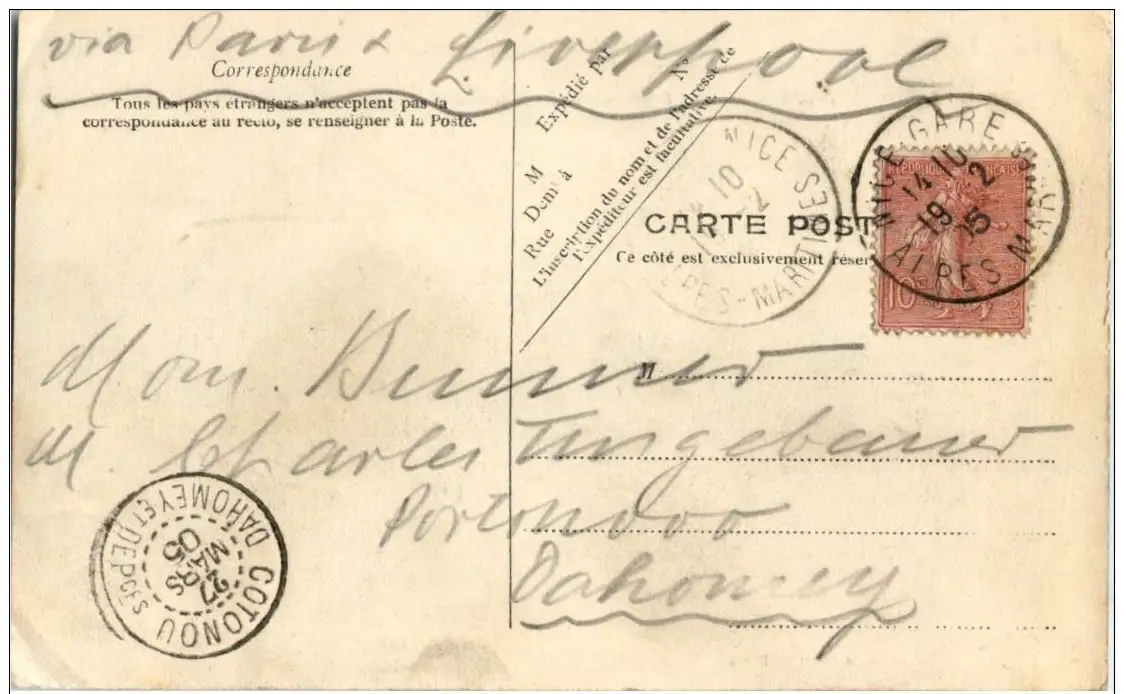 via Paris & Liverpool
Correspondance
Tous les pays étrangers n'acceptent pas la
correspondance au recto, se renseigner à la Poste.
Nº
Expédié par
M
Demt à
Rue
L'inscription du nom et de l'adresse de
l'expéditeur est facultative.
NICE GARE
ALPES MAR
14 10
19 2
15
RÉPUBLIQUE FRANÇAISE
10c
NICE
10
2
ALPES-MARITIMES
CARTE POST
Ce côté est exclusivement réser
M
Mon.
M. Charles
Dahomey
COTONOU
DAHOMEY ET DEPces
27
MARS
05